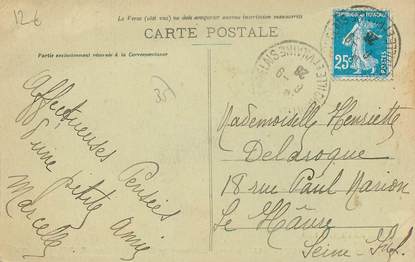 12€
Le Verso (côté vue) ne doit comporter aucune inscription manuscrite
CARTE POSTALE
Partie exclusivement réservée à la Correspondance
35
25c
POSTES
Affectueuses Pensées
d'une petite Amie
Marcelle
Mademoiselle Henriette
Delaroque
18 rue Paul Marion
Le Hâvre
Seine-Inf.